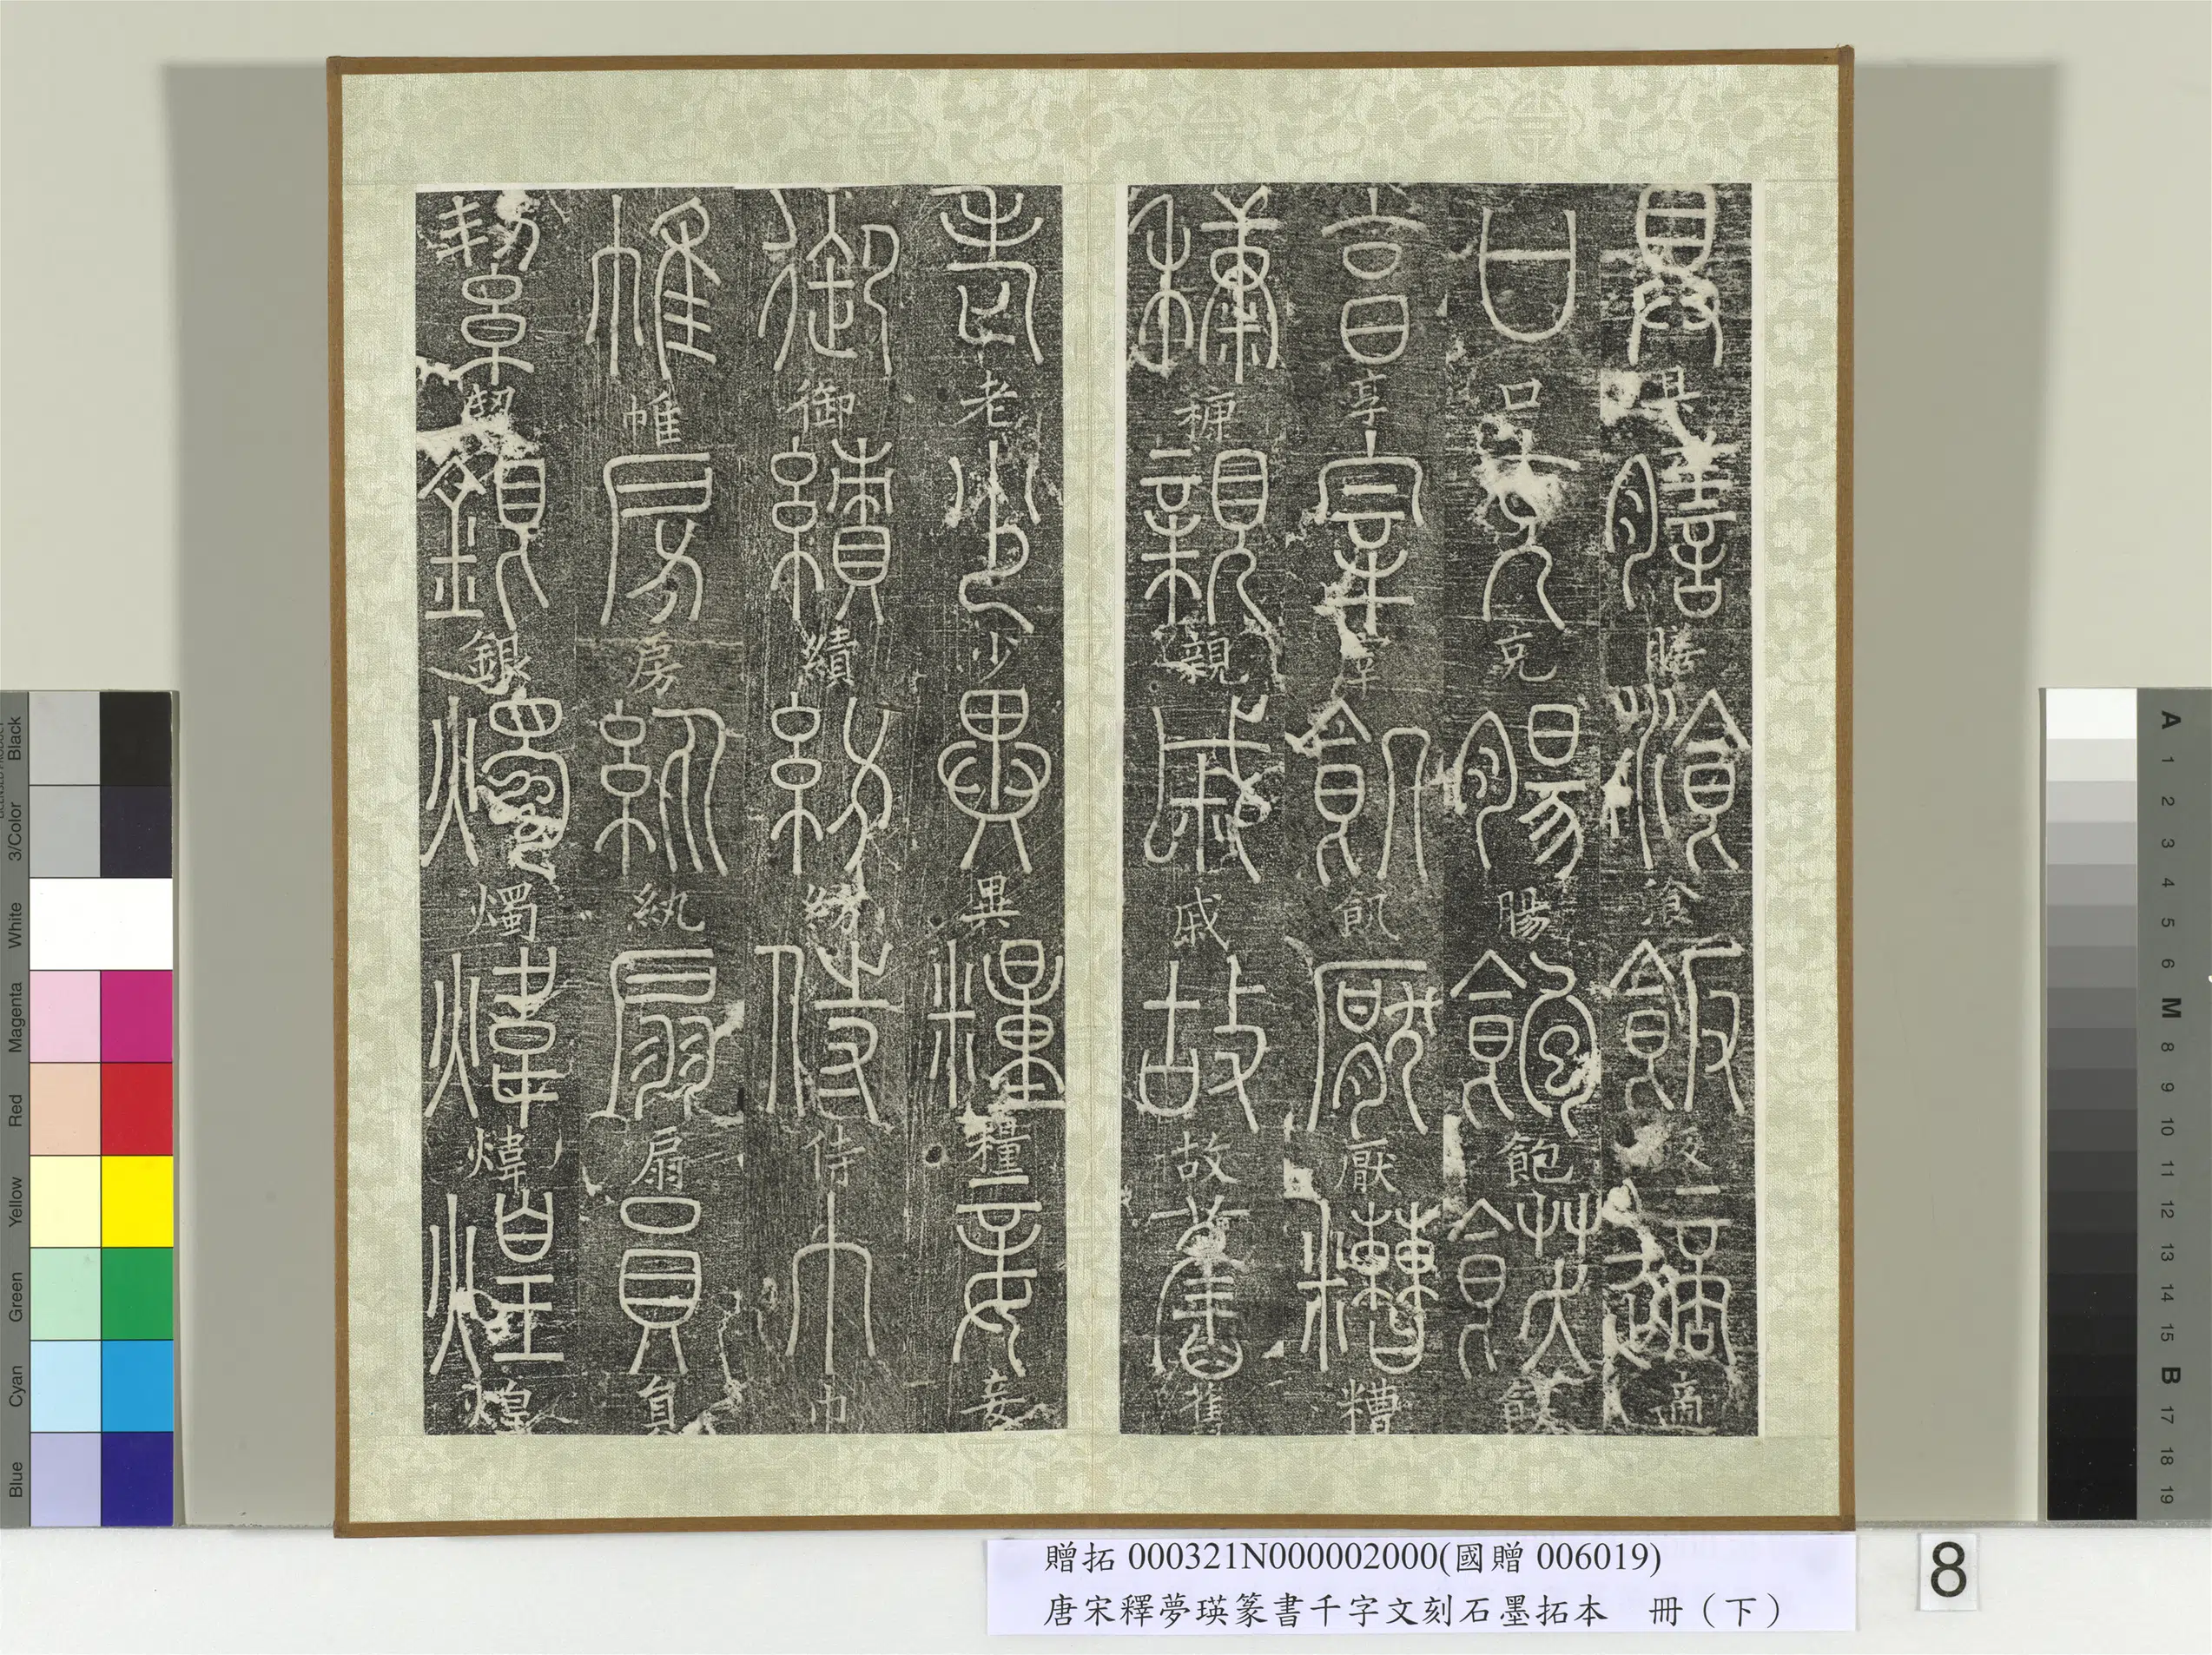 具具膳膳飡飡飯飯適適
口口充充腸腸飽飽飫飫
享享宰宰飢飢厭厭糟糟
糠糠親親戚戚故故舊舊
老老少少異異糧糧妾妾
御御績績紡紡侍侍巾巾
帷帷房房紈紈扇扇員員
絜絜銀銀燭燭煒煒煌煌
贈拓 000321N000002000(國贈 006019)
唐宋釋夢瑛篆書千字文刻石墨拓本 冊（下）
8
Black
3/Color
White
Magenta
Red
Yellow
Green
Cyan
Blue
A 1 2 3 4 5 6 M 8 9 10 11 12 13 14 15 B 17 18 19